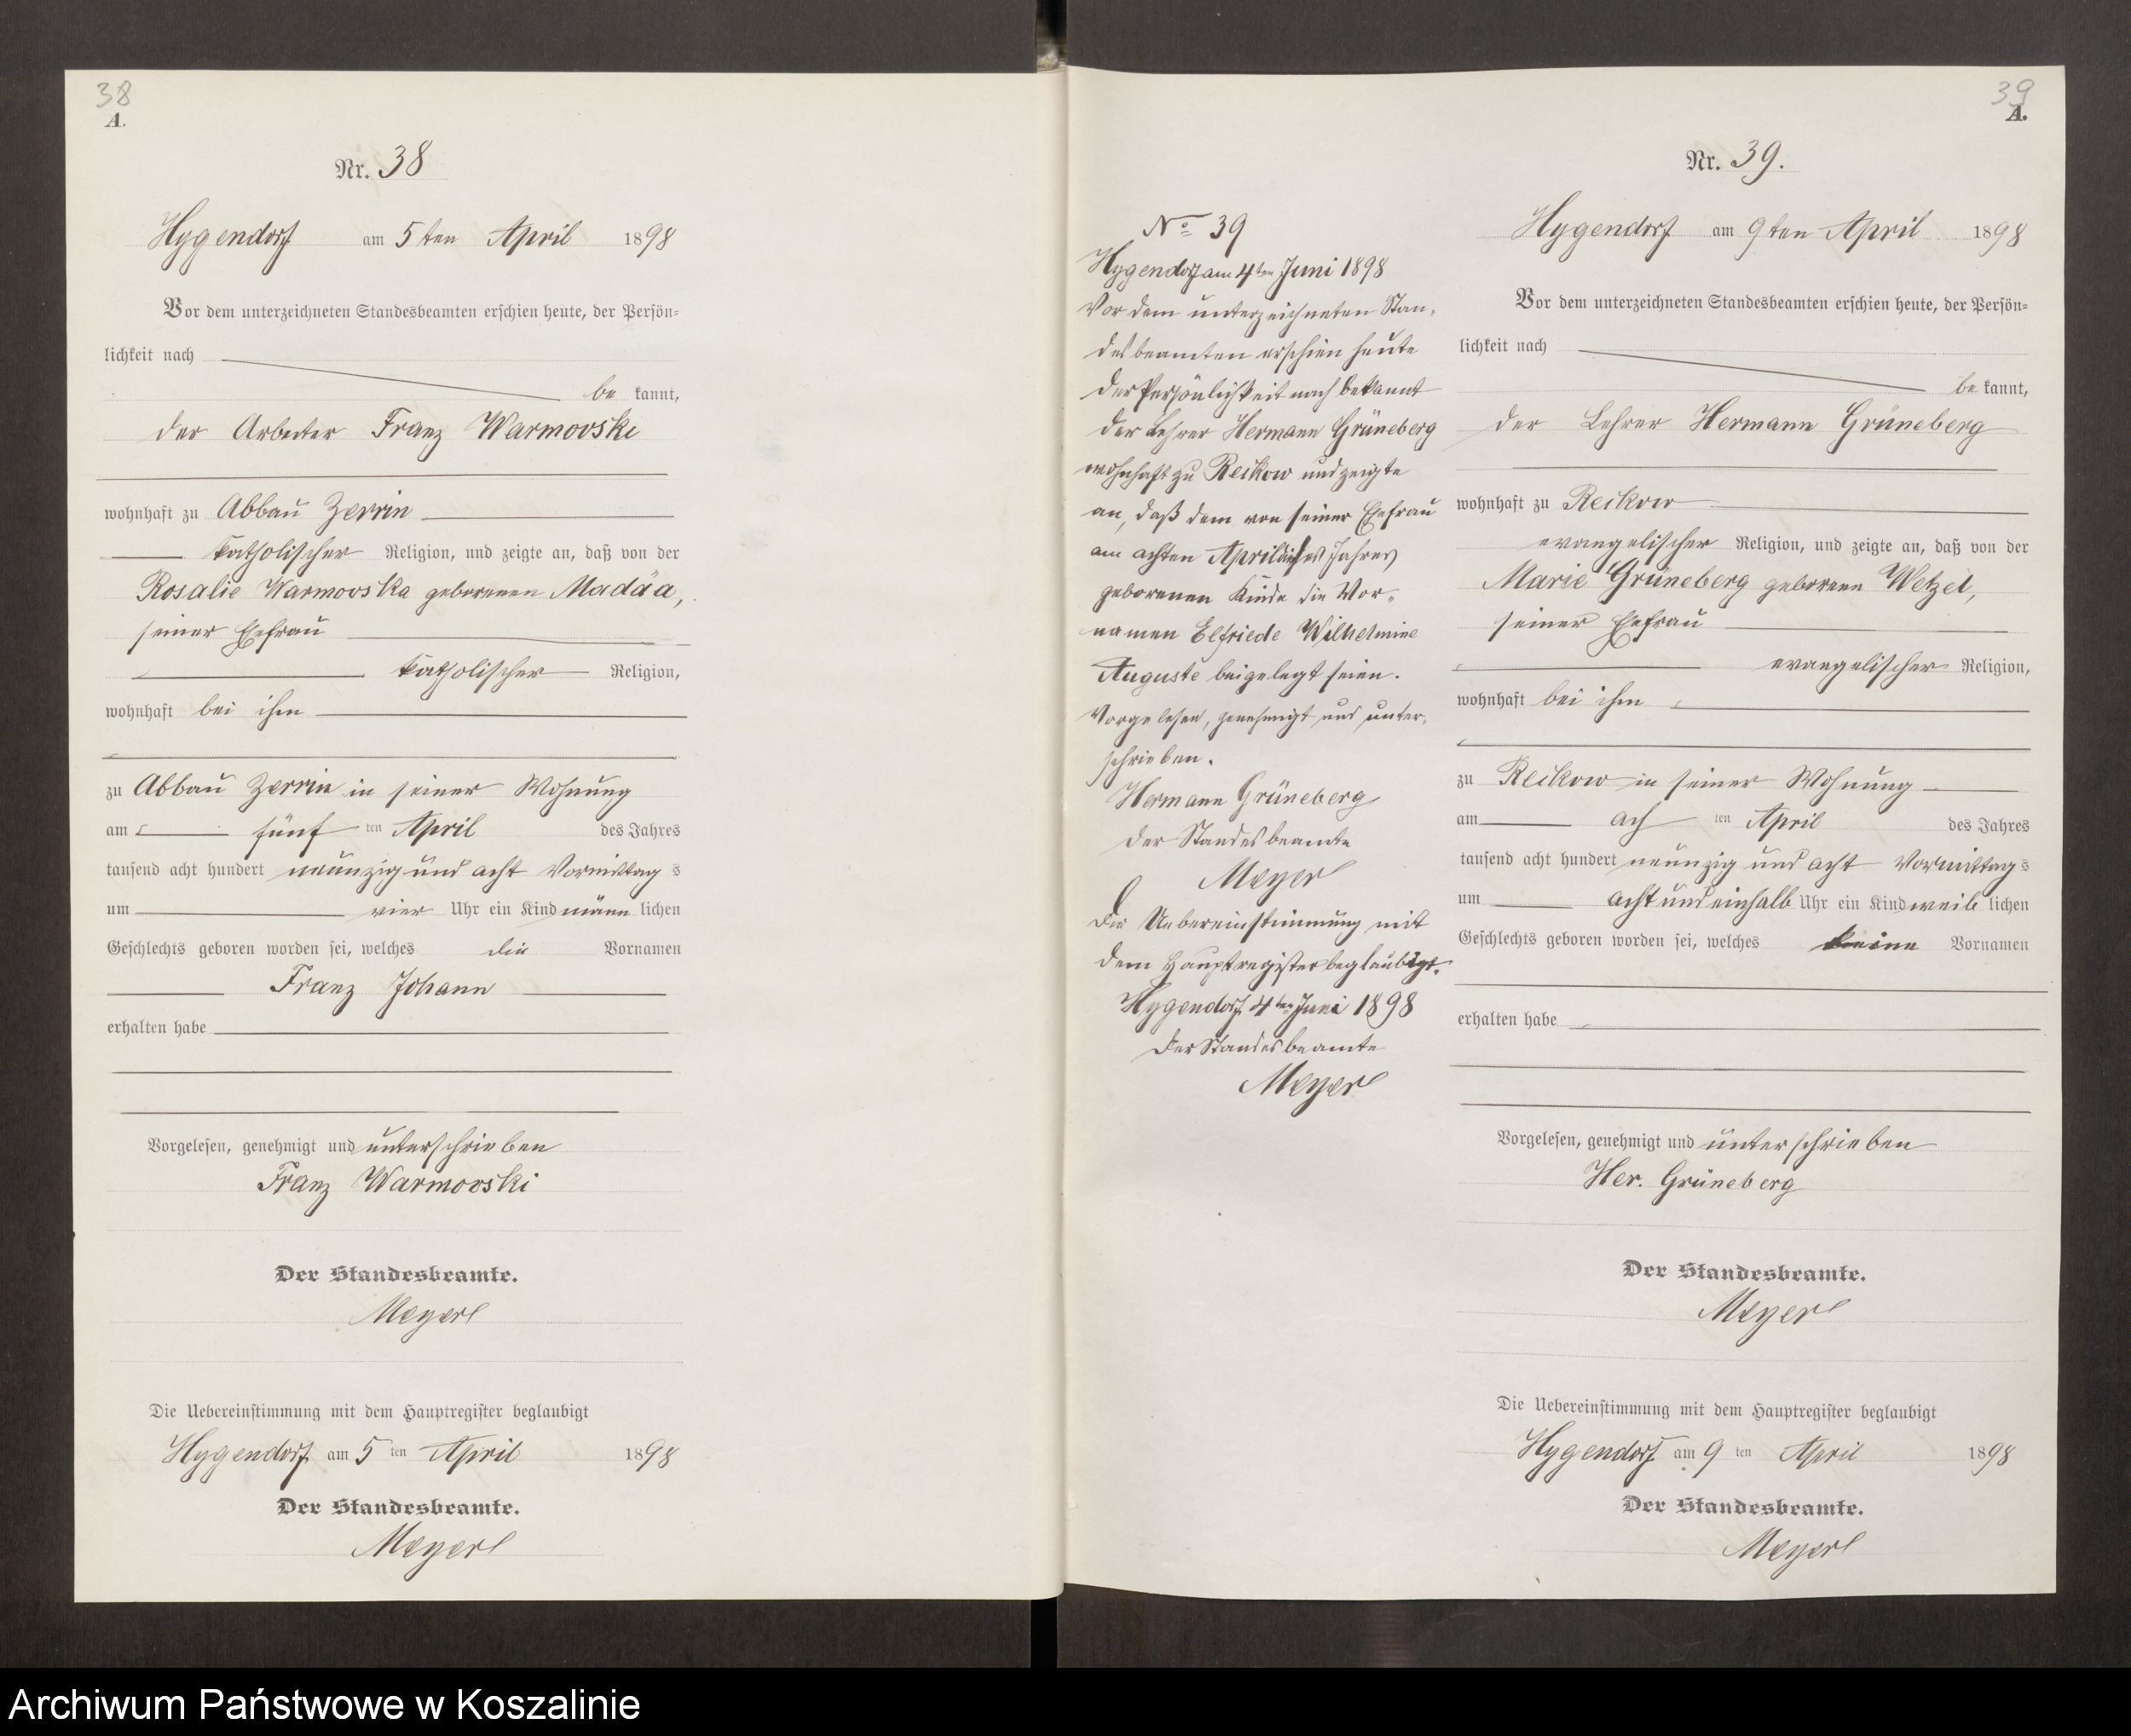 38
A.
Nr. 38
Hygendorf am 5ten April 1898
Vor dem unterzeichneten Standesbeamten erschien heute, der Persön=
lichkeit nach
be kannt,
der Arbeiter Franz Warmovski
wohnhaft zu Abbau Zerrin
katholischer Religion, und zeigte an, daß von der
Rosalie Warmovska geborenen Madäa,
seiner Ehefrau
katholischer Religion,
wohnhaft bei ihm
zu Abbau Zerrin in seiner Wohnung
am fünf ten April des Jahres
tausend acht hundert neunzig und acht Vormittag s
um vier Uhr ein Kind männ lichen
Geschlechts geboren worden sei, welches die Vornamen
Franz Johann
erhalten habe
Vorgelesen, genehmigt und unterschrieben
Franz Warmovski
Der Standesbeamte.
Meyer
Die Uebereinstimmung mit dem Hauptregister beglaubigt
Hygendorf am 5 ten April 1898
Der Standesbeamte.
Meyer
No 39
Hygendorf am 4ten Juni 1898
Vor dem unterzeichneten Stan-
desbeamten erschien heute
der Persönlichkeit nach bekannt
der Lehrer Hermann Grüneberg
wohnhaft zu Reckow und zeigte
an, daß dem von seiner Ehefrau
am achten April dieses Jahres
geborenen Kinde die Vor-
namen Elfriede Wilhelmine
Auguste beigelegt seien.
Vorgelesen, genehmigt und unter-
schrieben.
Hermann Grüneberg
Der Standesbeamte
Meyer
Die Uebereinstimmung mit
dem Hauptregister beglaubigt.
Hygendorf 4ten Juni 1898
Der Standesbeamte
Meyer
39
A.
Nr. 39.
Hygendorf am 9ten April 1898
Vor dem unterzeichneten Standesbeamten erschien heute, der Persön=
lichkeit nach
be kannt,
der Lehrer Hermann Grüneberg
wohnhaft zu Reckow
evangelischer Religion, und zeigte an, daß von der
Marie Grüneberg geborenen Wetzel,
seiner Ehefrau
evangelischer Religion,
wohnhaft bei ihm
zu Reckow in seiner Wohnung
am ach ten April des Jahres
tausend acht hundert neunzig und acht Vormittag s
um acht und einhalb Uhr ein Kind weib lichen
Geschlechts geboren worden sei, welches keine Vornamen
erhalten habe
Vorgelesen, genehmigt und unterschrieben
Her. Grüneberg
Der Standesbeamte.
Meyer
Die Uebereinstimmung mit dem Hauptregister beglaubigt
Hygendorf am 9 ten April 1898
Der Standesbeamte.
Meyer
Archiwum Państwowe w Koszalinie